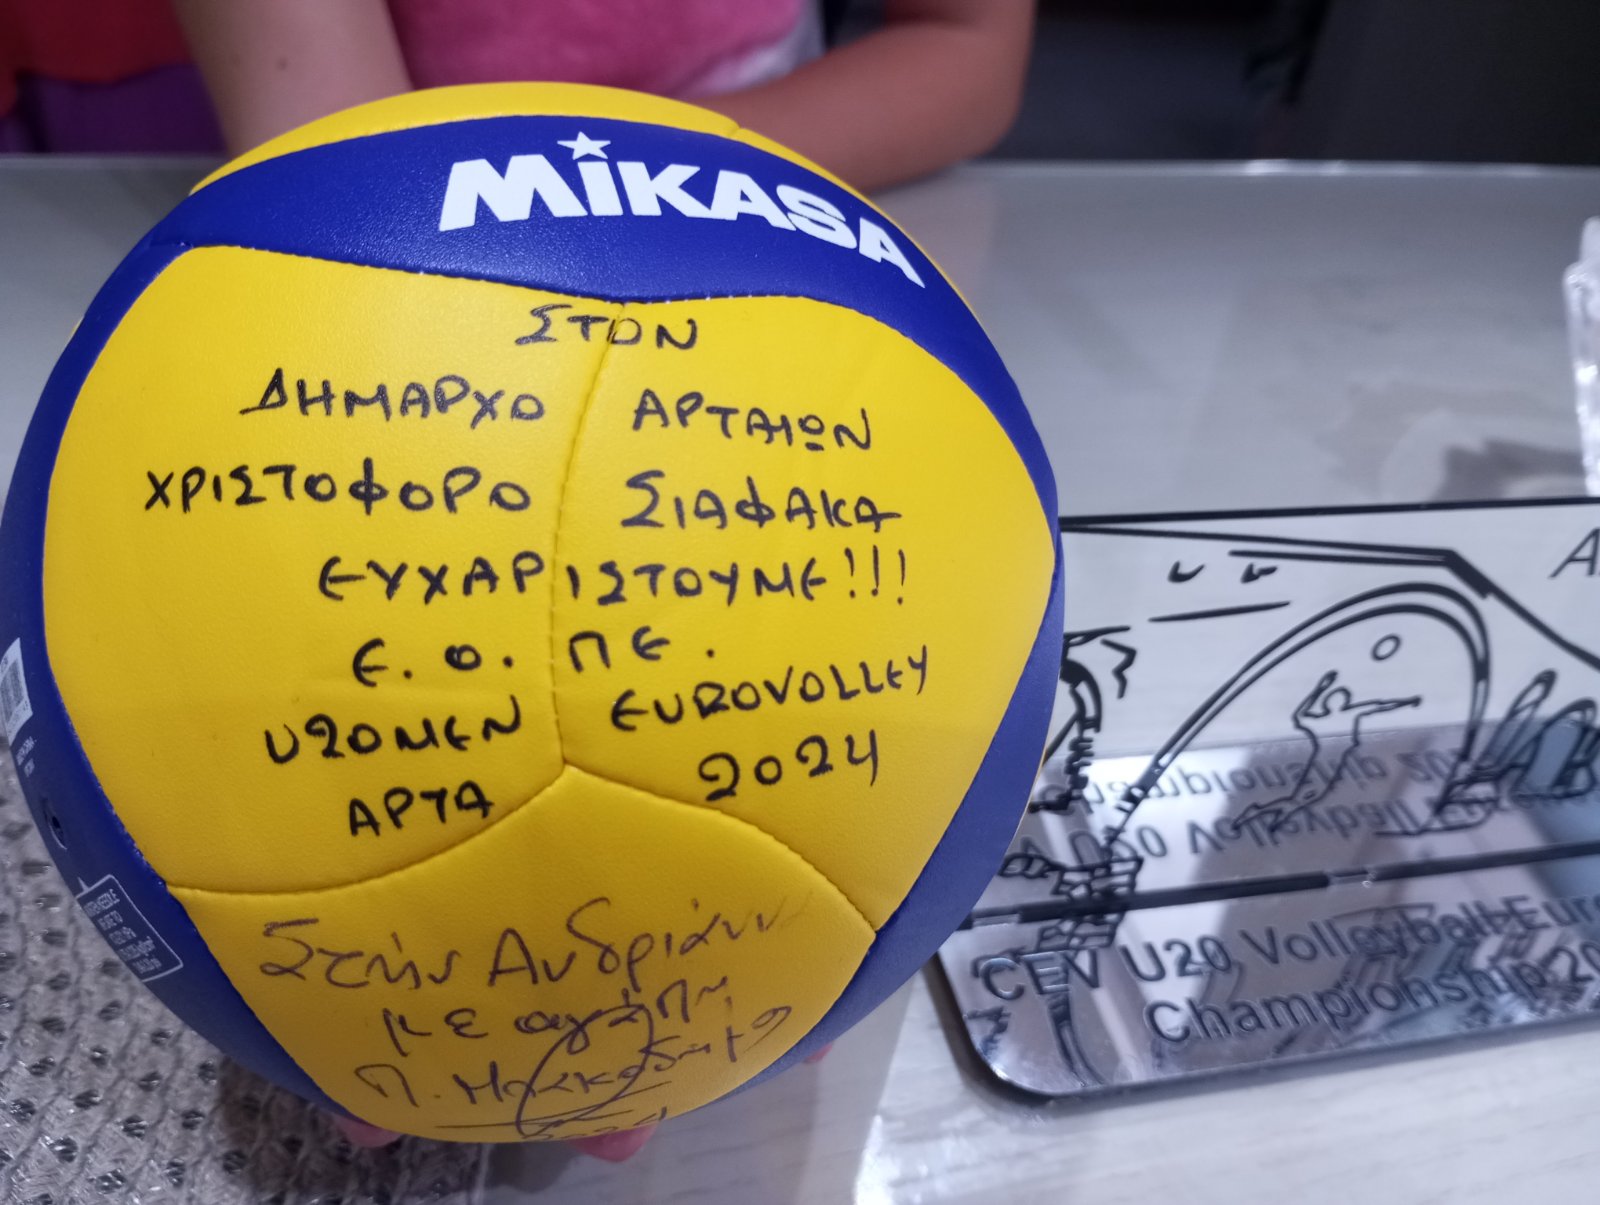 MIKASA
ΣΤΟΝ
ΔΗΜΑΡΧΟ ΑΡΤΑΙΩΝ
ΧΡΙΣΤΟΦΟΡΟ ΣΙΑΦΑΚΑ
ΕΥΧΑΡΙΣΤΟΥΜΕ!!!
Ε.Ο.ΠΕ.
U20MEN EUROVOLLEY
ΑΡΤΑ 2024
Στην Ανδριάννα
με αγάπη
Π.
CEV U20 Volleyball Euro
Championship 20